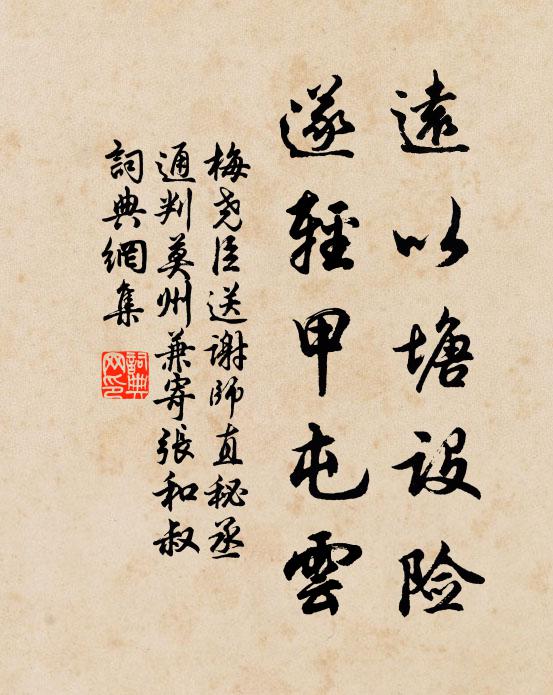 遠以塘設险
遂輕甲屯雲
梅尧臣送謝師直秘丞
通判莫州兼寄張和叔
詞典網集
詞典网印